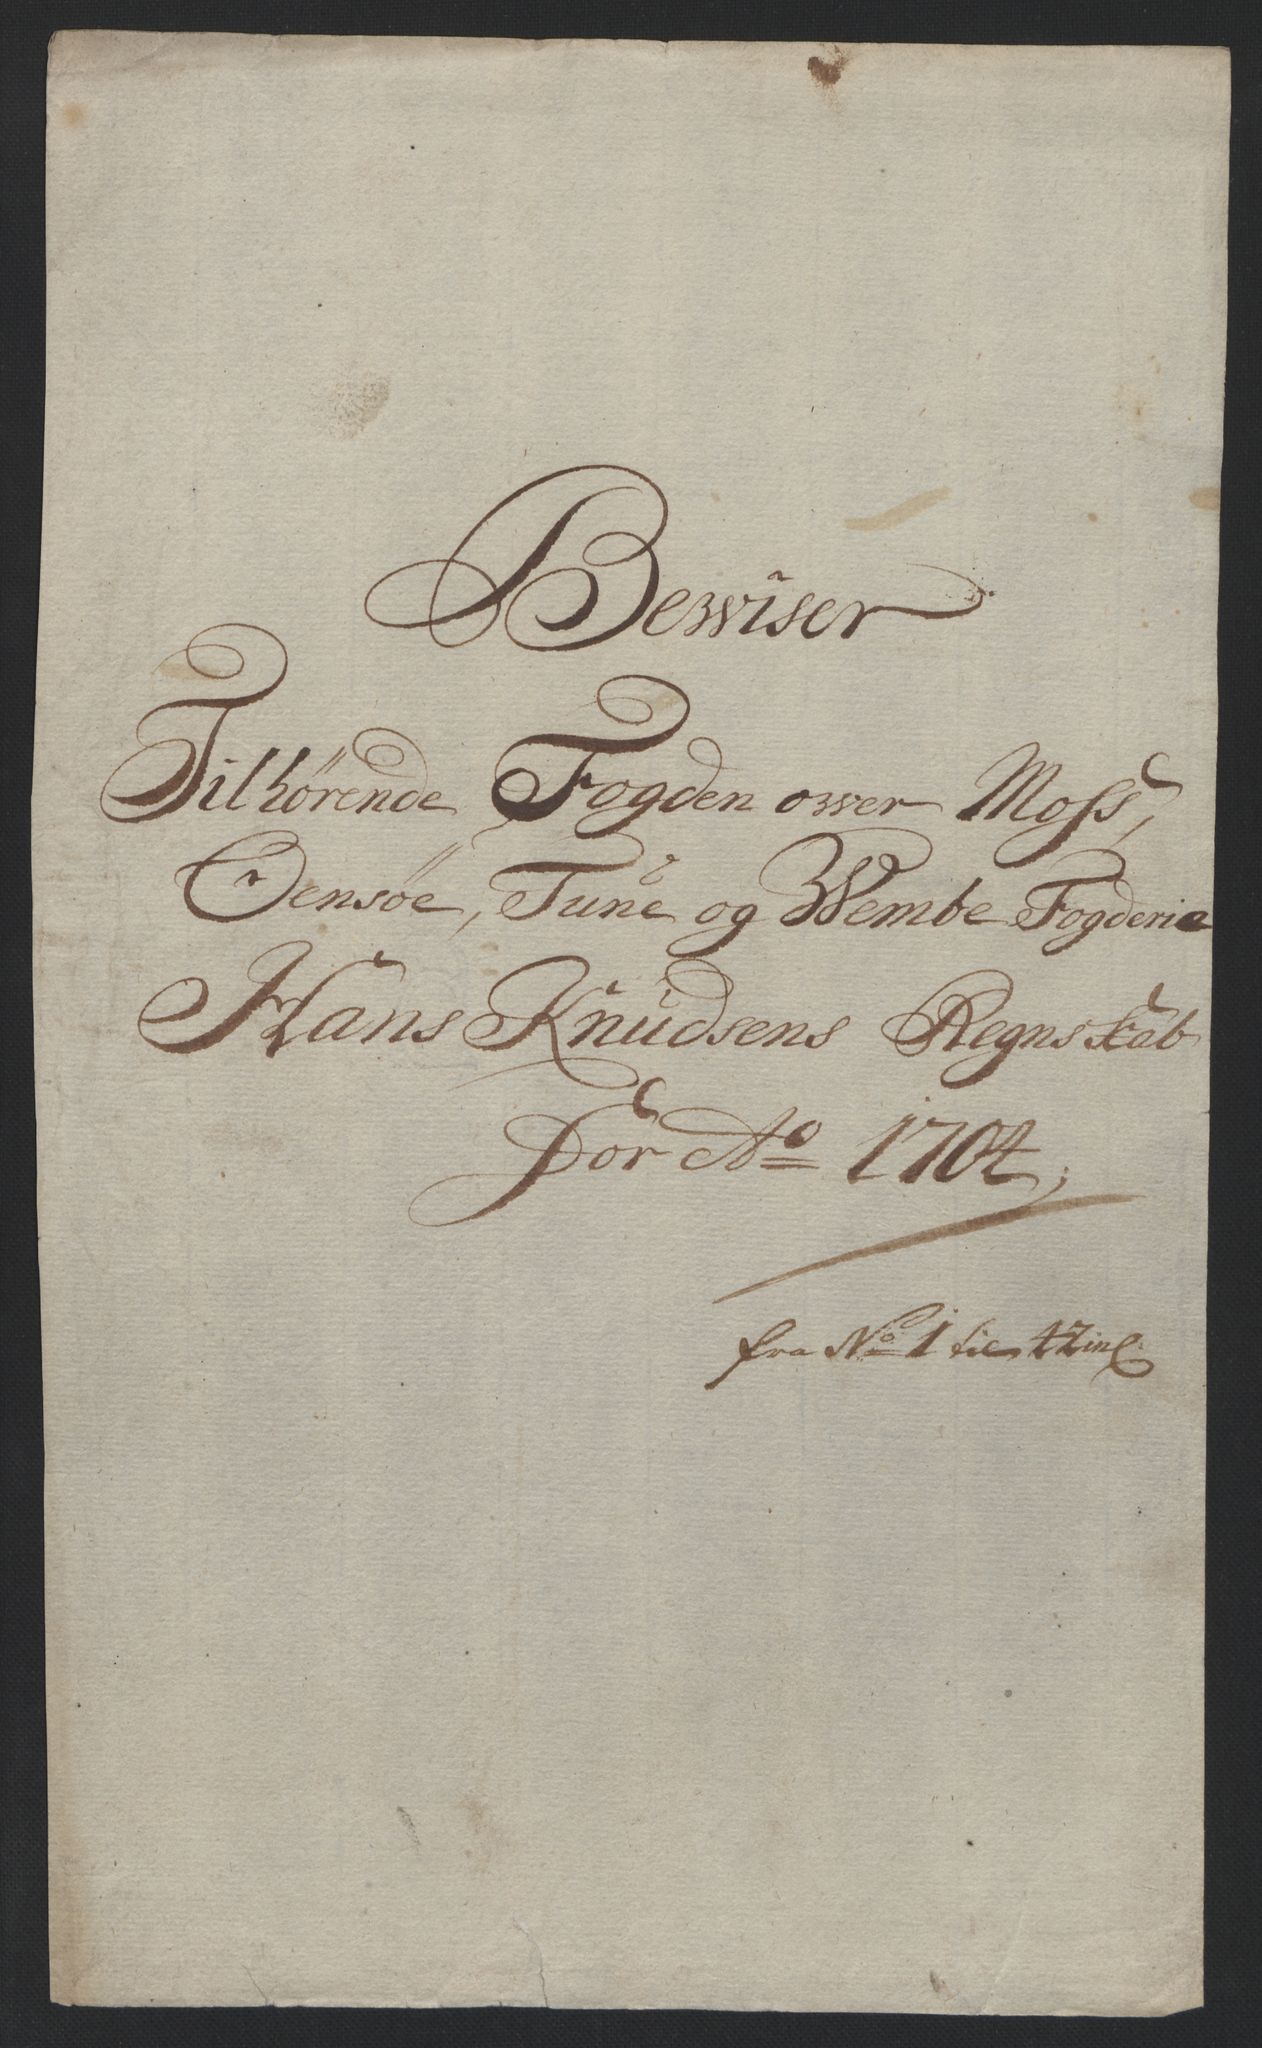 Bewiser
Tilhørende Fogden ower Moss,
Oensøe, Tune og Wembe Fogderie
Hans Knudsens Regnskab
For Ao 1704,
fra No 1 til 42 incl: